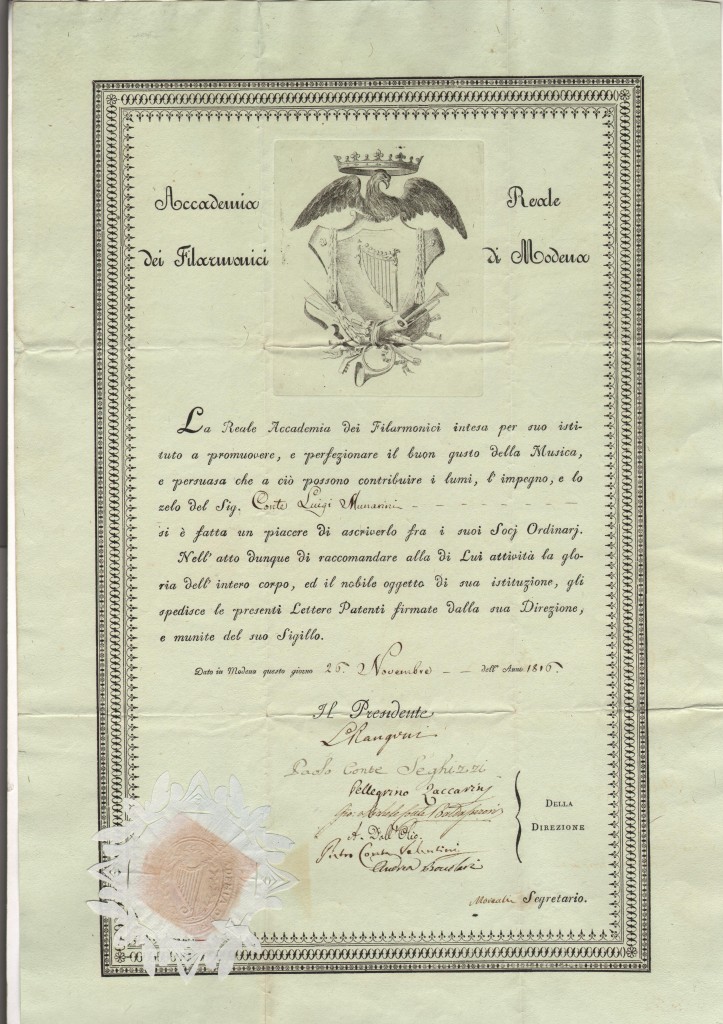 Accademia Reale
dei Filarmonici di Modena
La Reale Accademia dei Filarmonici intesa per suo isti-
tuto a promuovere, e perfezionare il buon gusto della Musica,
e persuasa che a ciò possono contribuire i lumi, l'impegno, e lo
zelo del Sig. Conte Luigi Munarini - - - - - - -
si è fatta un piacere di ascriverlo fra i suoi Socj Ordinarj.
Nell'atto dunque di raccomandare alla di Lui attività la glo-
ria dell'intero corpo, ed il nobile oggetto di sua istituzione, gli
spedisce le presenti Lettere Patenti firmate dalla sua Direzione,
e munite del suo Sigillo.
Dato in Modena questo giorno 26. Novembre - - dell'Anno 1816.
Il Presidente
L Rangoni
Paolo Conte Seghizzi
Pellegrino Zaccarini
Pietro Conte Valentini
Andrea
DELLA
DIREZIONE
Segretario.